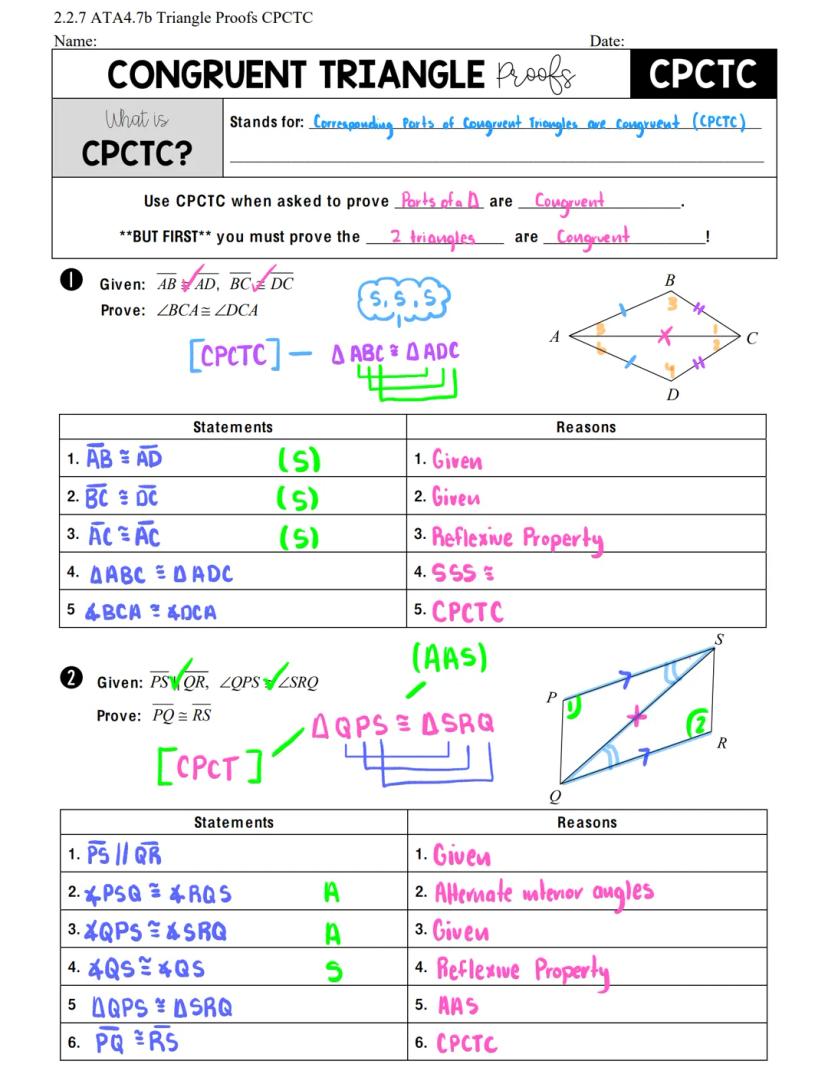 2.2.7 ATA4.7b Triangle Proofs CPCTC
Name: Date:
CONGRUENT TRIANGLE Proofs CPCTC
What is
CPCTC?
Stands for: Corresponding Parts of Congruent Triangles are Congruent (CPCTC)
Use CPCTC when asked to prove Parts of a Δ are Congruent.
**BUT FIRST** you must prove the 2 triangles are Congruent!
1 Given: AB ≅ AD, BC ≅ DC
Prove: ∠BCA ≅ ∠DCA
S, S, S
[CPCTC] — Δ ABC ≅ Δ ADC
B
3
5
1
A
C
6
2
4
D
Statements Reasons
1. AB ≅ AD (S) 1. Given
2. BC ≅ DC (S) 2. Given
3. AC ≅ AC (S) 3. Reflexive Property
4. ΔABC ≅ ΔADC 4. SSS ≅
5 ∡BCA ≅ ∡DCA 5. CPCTC
(AAS)
2 Given: PS || QR, ∠QPS ≅ ∠SRQ
Prove: PQ ≅ RS
ΔQPS ≅ ΔSRQ
[CPCT]
S
P
1
2
R
Q
Statements Reasons
1. PS // QR 1. Given
2. ∡PSQ ≅ ∡RQS A 2. Alternate interior angles
3. ∡QPS ≅ ∡SRQ A 3. Given
4. ∡QS ≅ ∡QS S 4. Reflexive Property
5 ΔQPS ≅ ΔSRQ 5. AAS
6. PQ ≅ RS 6. CPCTC